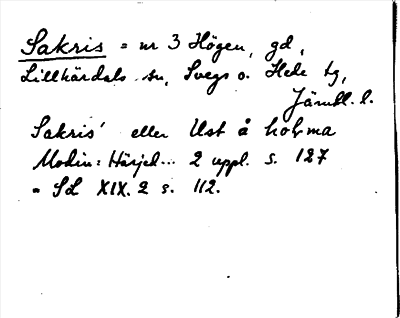 Sakris = nr 3 Högen, gd,
Lillhärdals sn, Svegs o. Hede tg,
Jämtl. l.
Sakris' eller Ust å holma
Modin: Härjed... 2 uppl. s. 127
= Sd XIX. 2 s. 112.